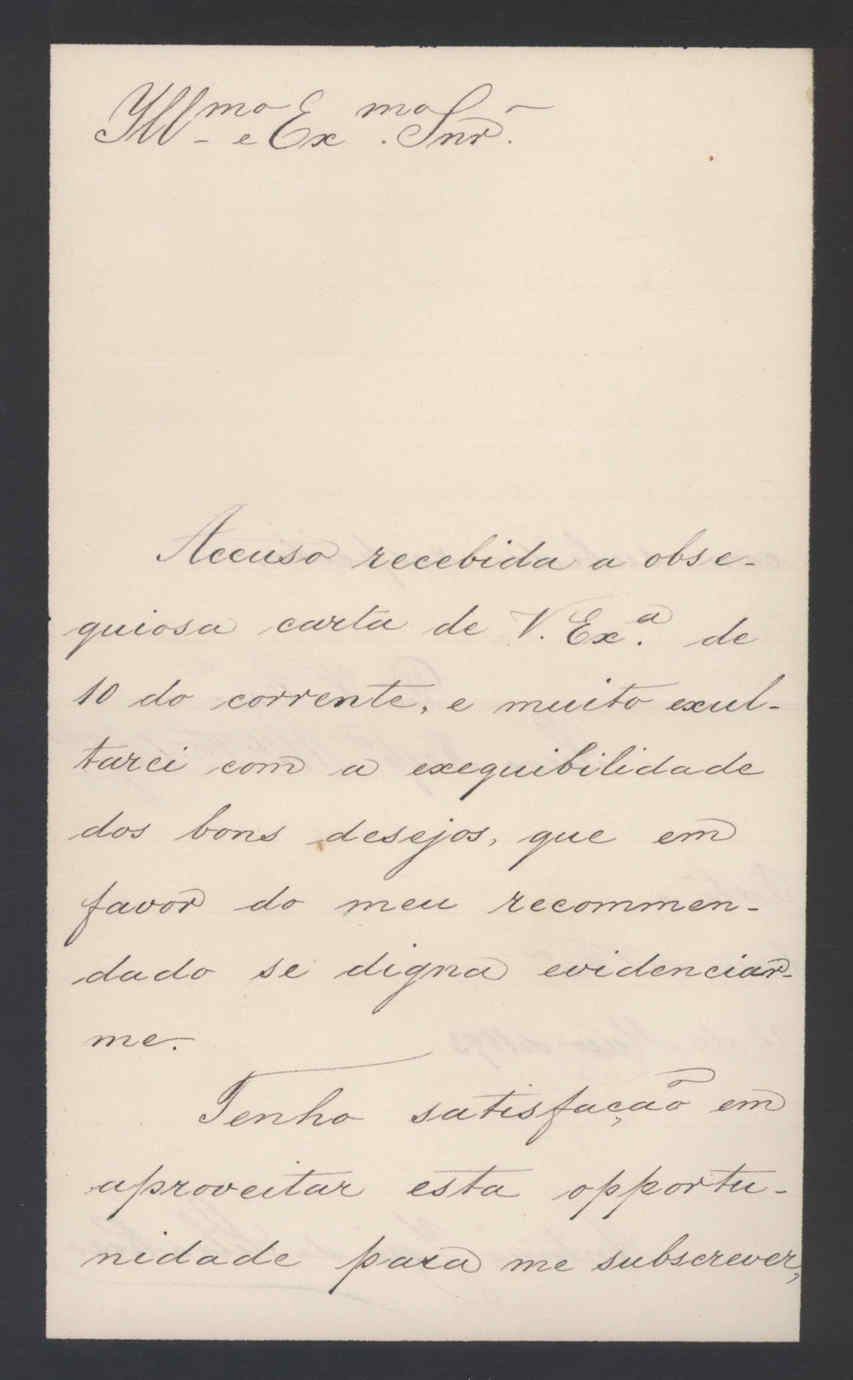 Ill.mo e Ex.mo Snr.
Accuso recebida a obse-
quiosa carta de V. Ex.a de
10 do corrente, e muito exul-
tarei com a exequibilidade
dos bons desejos, que em
favor do meu recommen-
dado se digna evidenciar-
me.
Tenho satisfação em
aproveitar esta opportu-
nidade para me subscrever,